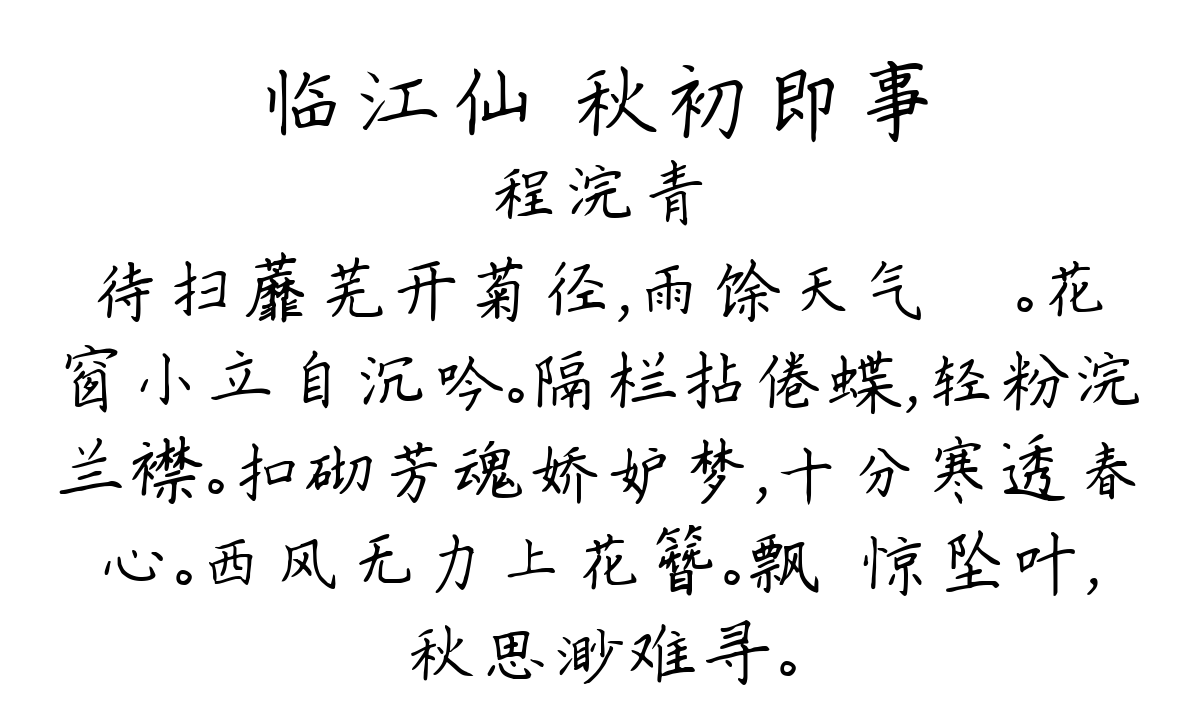 临江仙 秋初即事
程浣青
待扫蘼芜开菊径,雨馀天气 。花
窗小立自沉吟。隔栏拈倦蝶,轻粉浣
兰襟。扣砌芳魂娇妒梦,十分寒透春
心。西风无力上花簪。飘 惊坠叶,
秋思渺难寻。